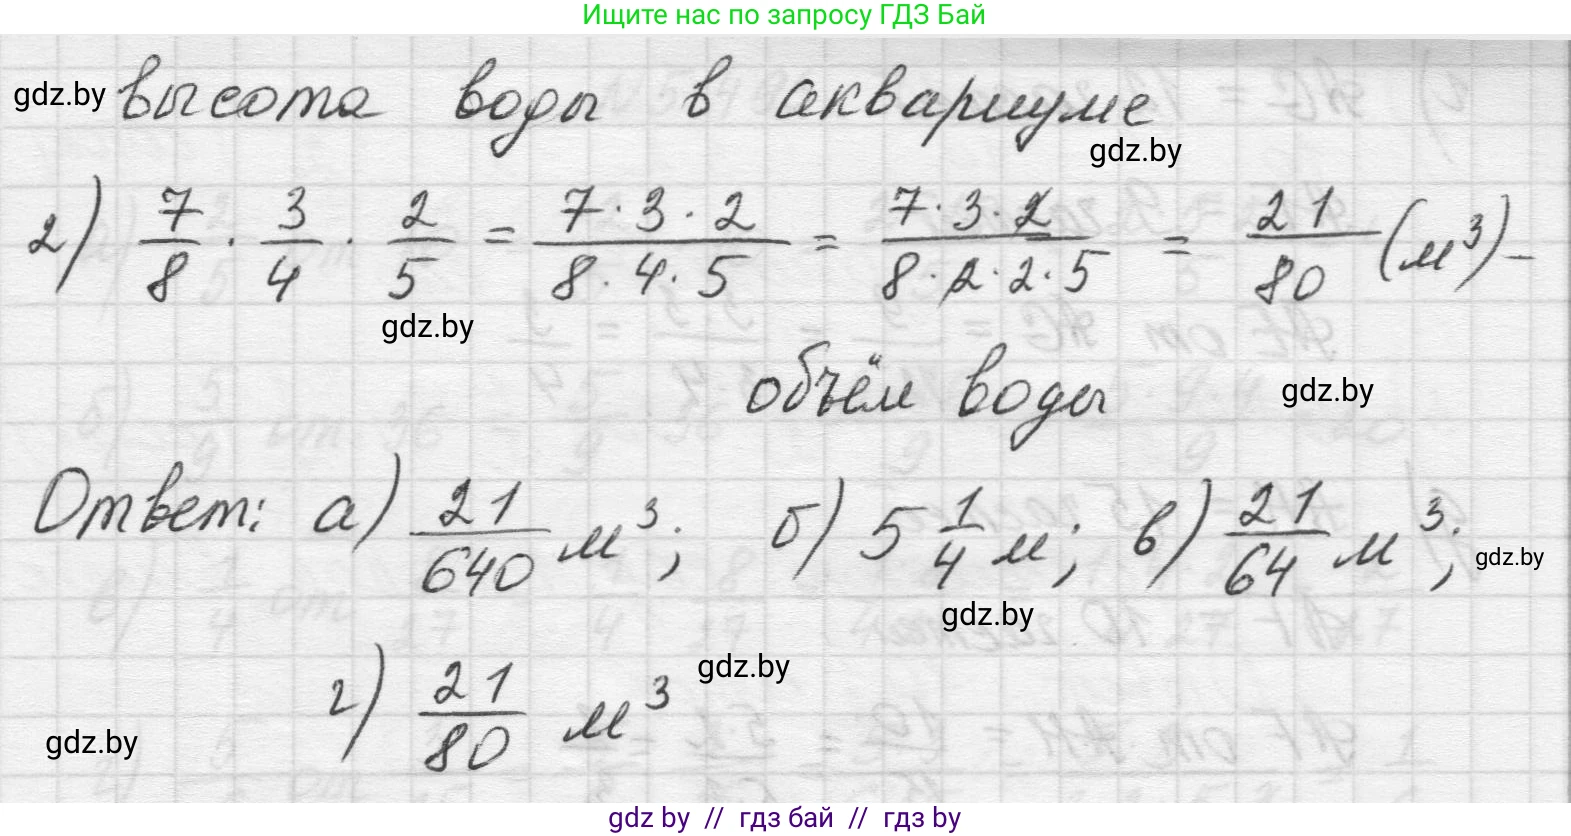 Ищите нас по запросу ГДЗ Бай
gdz.by высота воды в аквариуме
gdz.by
2) 7/8 · 3/4 · 2/5 = 7·3·2/8·4·5 = 7·3·2/8·2·2·5 = 21/80 (м³) –
gdz.by
объём воды gdz.by
Ответ: а) 21/640 м³; б) 5 1/4 м; в) 21/64 м³; gdz.by
gdz.by
г) 21/80 м³ gdz.by
gdz.by
gdz by // гдз бай // gdz by